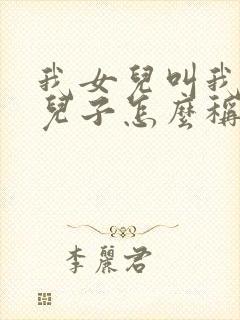 我女兒叫我
兒子怎麼稱
李麗君